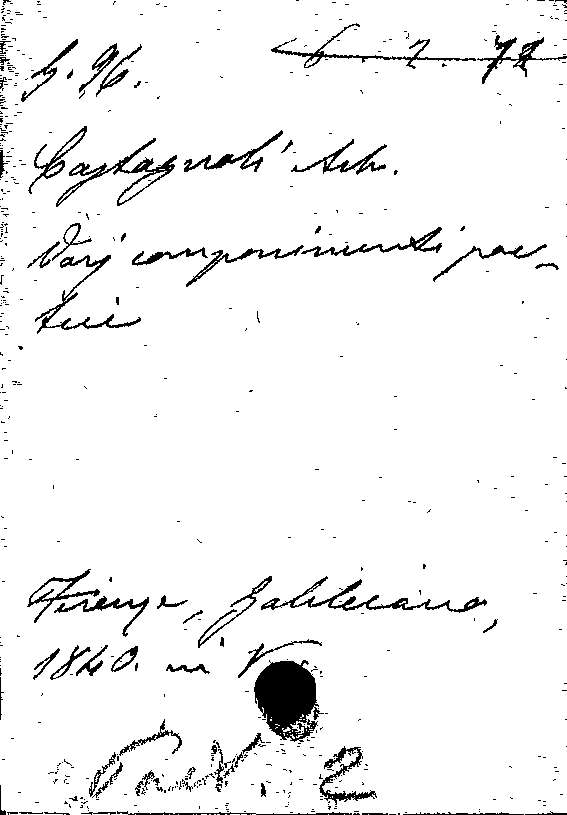 6. 7. 72
G. 96.
Castagnoli Ach.
Varj componimenti poe-
tici
Firenze, Galileiana,
1840. in V
2